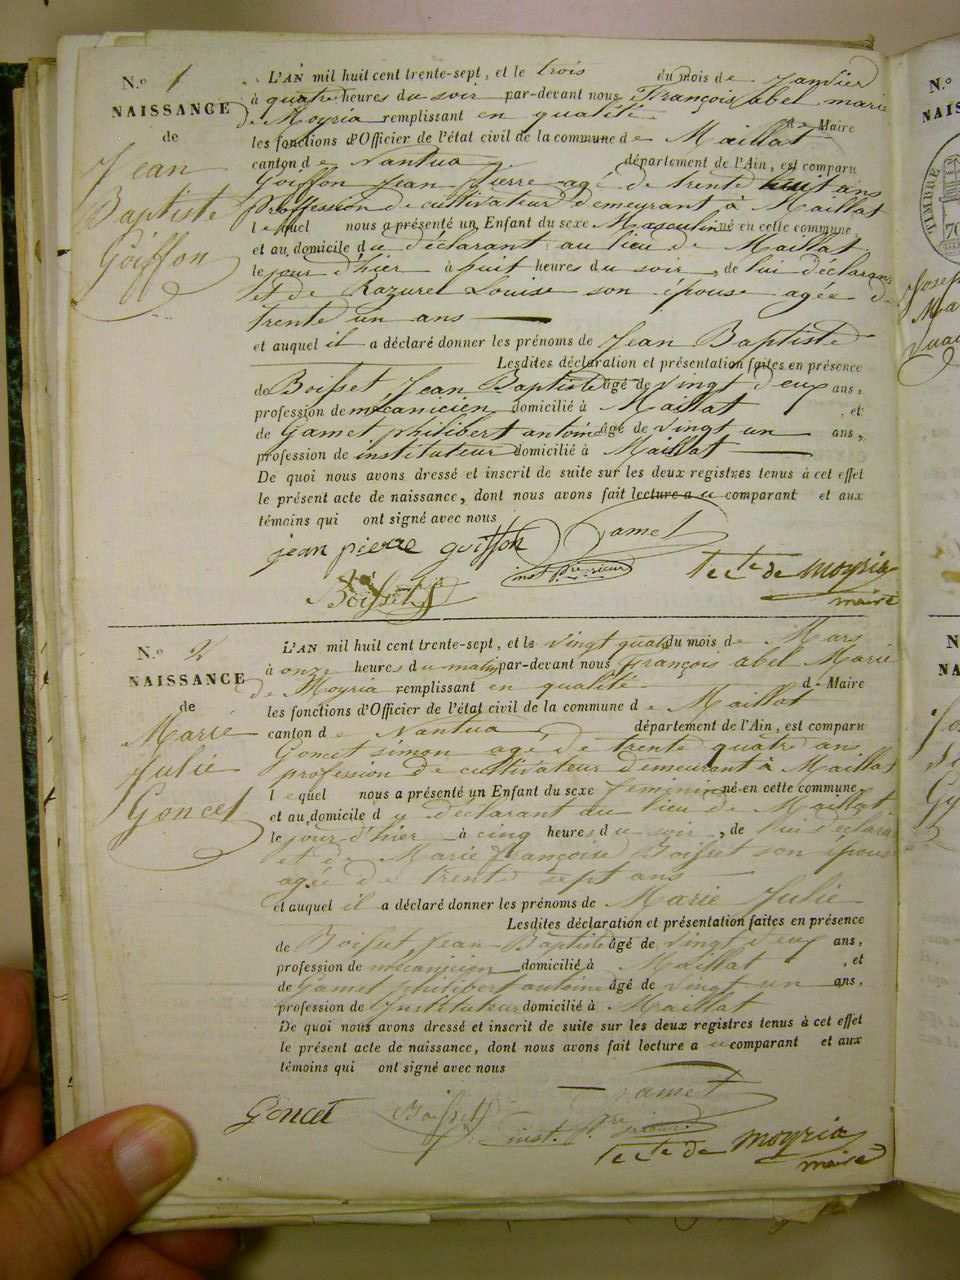 N.o 1
NAISSANCE
de
Jean
Baptiste
Goiffon
L'AN mil huit cent trente-sept, et le trois du mois de Janvier
à quatre heures du soir par-devant nous François abel marie
de Moyria remplissant en qualité de Maire
les fonctions d'Officier de l'état civil de la commune de Maillat
canton de Nantua département de l'Ain, est comparu
Goiffon Jean Pierre agé de trente huit ans
profession de cultivateur demeurant à Maillat
lequel nous a présenté un Enfant du sexe Masculin né en cette commune,
et au domicile du déclarant au lieu de Maillat
le jour d'hier à huit heures du soir, de lui déclarant
et de Razurel Louise son épouse agée de
trente un ans
et auquel il a déclaré donner les prénoms de Jean Baptiste
Lesdites déclaration et présentation faites en présence
de Boisset Jean Baptiste âgé de vingt deux ans,
profession de mécanicien domicilié à Maillat, et
de Gamet philibert antoine âgé de vingt un ans,
profession de instituteur domicilié à Maillat
De quoi nous avons dressé et inscrit de suite sur les deux registres tenus à cet effet
le présent acte de naissance, dont nous avons fait lecture au comparant et aux
témoins qui ont signé avec nous
jean pierre goiffon Gamet
inst.
Boisset
de moyria
maire
N.o 2
NAISSANCE
de
Marie
Julie
Goncet
L'AN mil huit cent trente-sept, et le vingt quatre du mois de Mars
à onze heures du matin par-devant nous françois abel Marie
de Moyria remplissant en qualité de Maire
les fonctions d'Officier de l'état civil de la commune de Maillat
canton de Nantua département de l'Ain, est comparu
Goncet simon agé de trente quatre ans
profession de cultivateur demeurant à Maillat
lequel nous a présenté un Enfant du sexe féminin né en cette commune,
et au domicile du déclarant au lieu de Maillat
le jour d'hier à cinq heures du soir, de lui déclara
et de Marie françoise Boisset son épous
agée de trente sept ans
et auquel il a déclaré donner les prénoms de Marie Julie
Lesdites déclaration et présentation faites en présence
de Boisset Jean Baptiste âgé de vingt deux ans,
profession de mécanicien domicilié à Maillat, et
de Gamet philibert antoine âgé de vingt un ans,
profession de Instituteur domicilié à Maillat
De quoi nous avons dressé et inscrit de suite sur les deux registres tenus à cet effet
le présent acte de naissance, dont nous avons fait lecture au comparant et aux
témoins qui ont signé avec nous
Gamet
Goncet Boisset inst.
de moyria
maire
N.o
NAISS
TIMBRE
70
Joseph
N.
NA